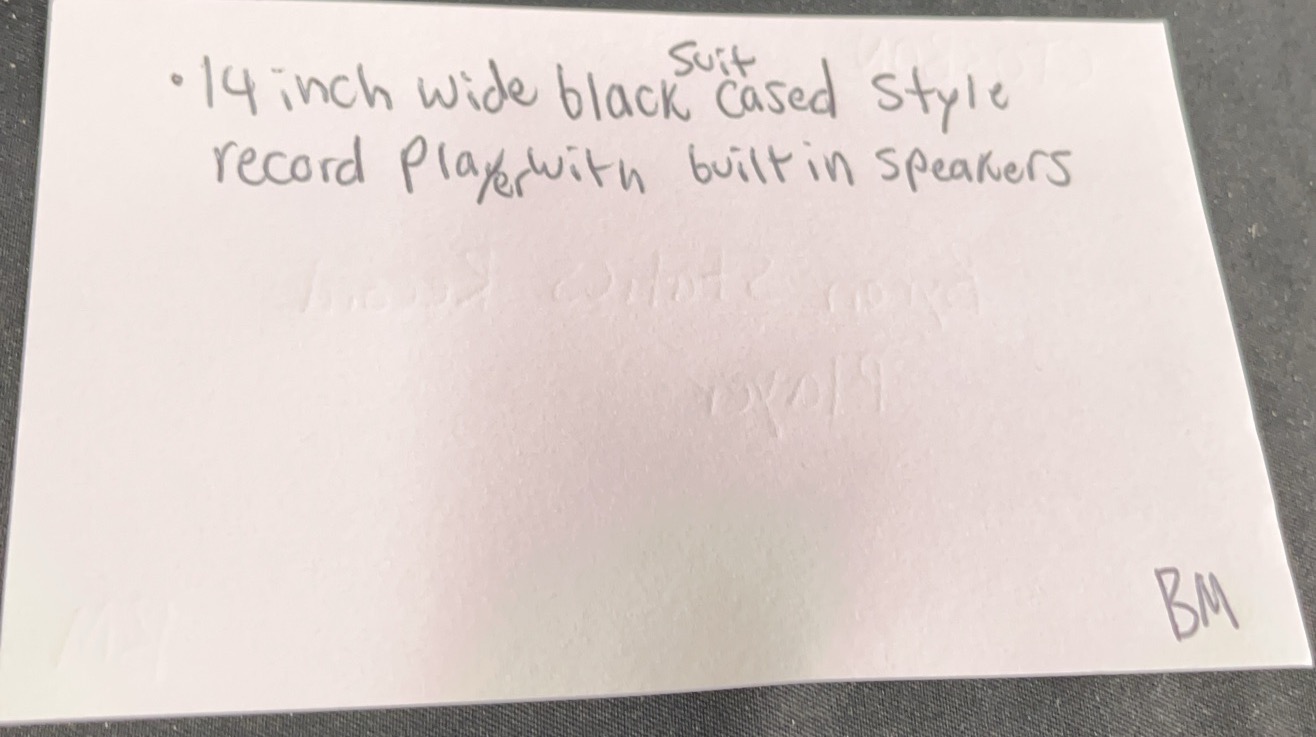 • 14 inch wide black suit cased style
record player with built in speakers
Player
BM